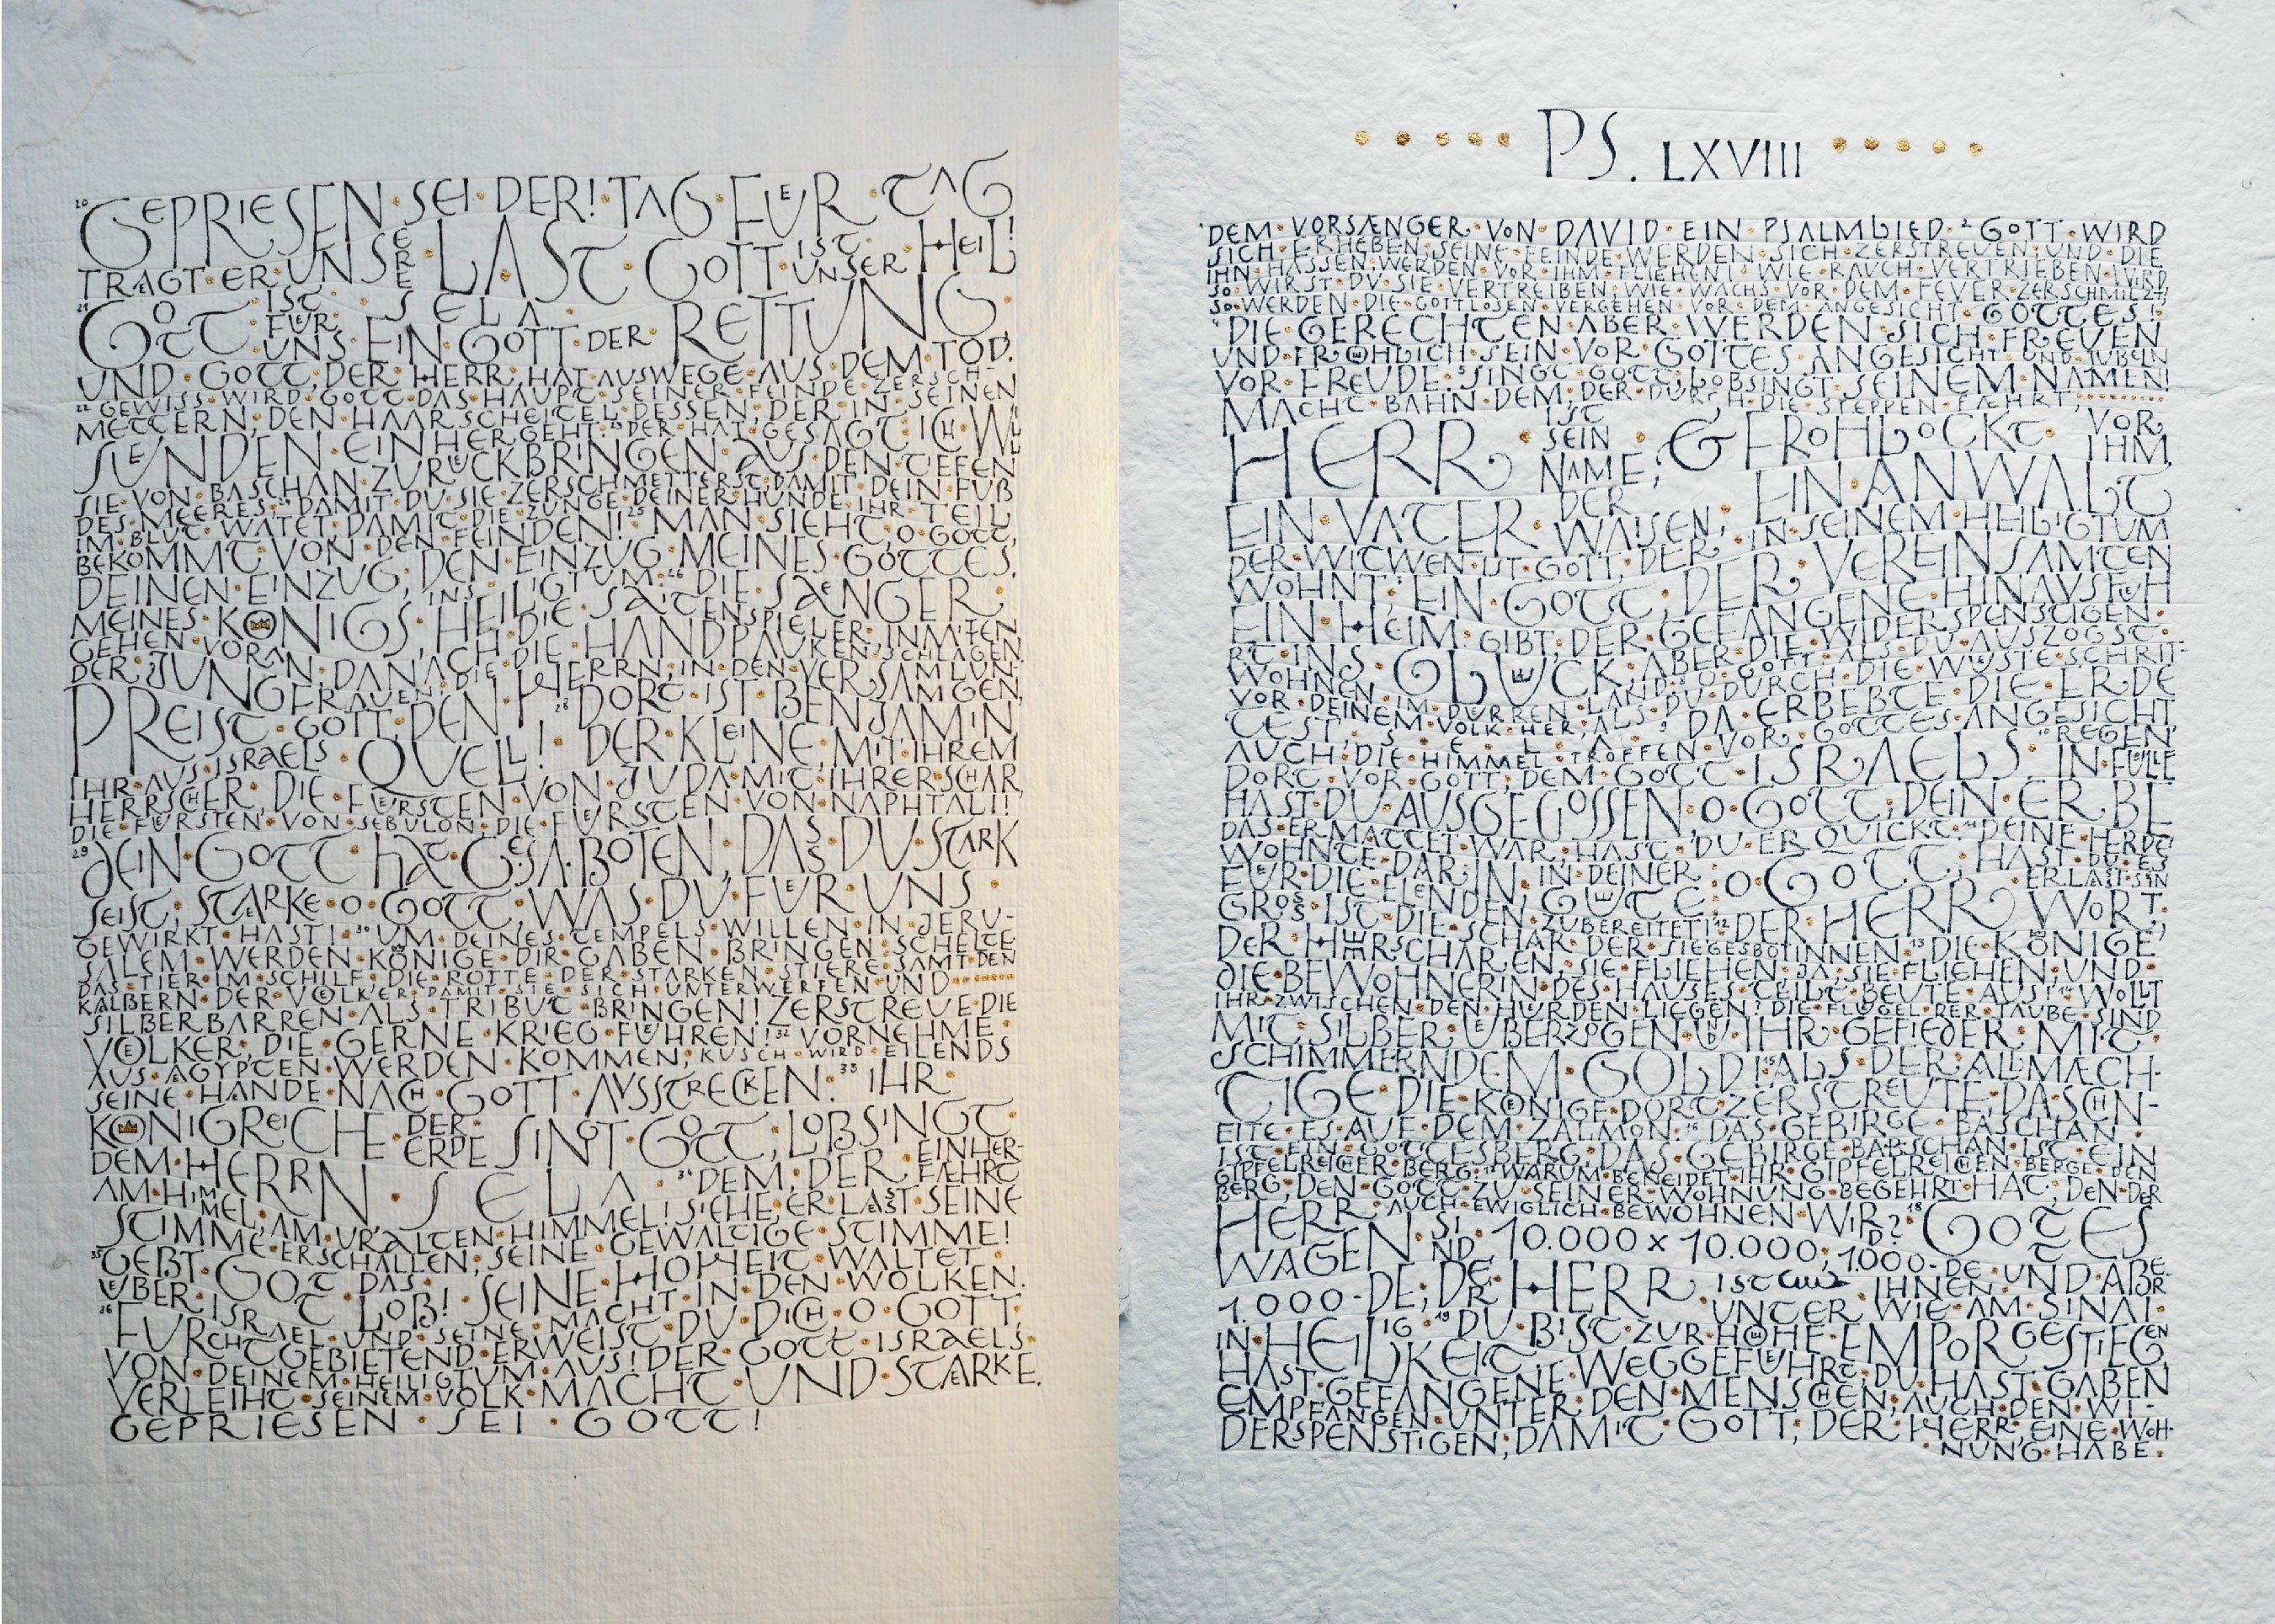 20 GEPRIESEN·SEI·DER! TAG·FUER·TAG
TRÆGT·ER·UNSERE·LAST·GOTT·IST·UNSER·HEIL!
·SELA·
21 GOTT·IST·FUER·UNS·EIN·GOTT·DER·RETTUNG·
UND·GOTT, DER·HERR, HAT·AUSWEGE·AUS·DEM·TOD.
22 GEWISS·WIRD·GOTT·DAS·HAUPT·SEINER·FEINDE·ZERSCH-
METTERN, DEN·HAARSCHEITEL·DESSEN, DER·IN·SEINEN
SUENDEN·EINHERGEHT. 23 DER·HAT·GESAGT·ICH·WILL
SIE·VON·BASCHAN·ZURUECKBRINGEN·AUS·DEN·TIEFEN
DES·MEERES·24 DAMIT·DU·SIE·ZERSCHMETTERST, DAMIT·DEIN·FUß
IM·BLUT·WATET·DAMIT·DIE·ZUNGE·DEINER·HUNDE·IHR·TEIL
BEKOMMT·VON·DEN·FEINDEN! 25 MAN·SIEHT, O·GOTT,
DEINEN·EINZUG, DEN·EINZUG·MEINES·GOTTES,
MEINES·KOENIGS, INS·HEILIGTUM. 26 DIE·SÆNGER·
GEHEN·VORAN·DANACH·DIE·SAITENSPIELER, INMITTEN
DER·JUNGFRAUEN, DIE·DIE·HANDPAUKEN·SCHLAGEN.
PREIST·GOTT, DEN·HERRN, IN·DEN·VERSAMLUNGEN,
IHR·AUS·ISRAELS·QUELL! 28 DORT·IST·BENJAMIN,
DER·KLEINE, MIT·IHREM
HERRSCHER, DIE·FUERSTEN·VON·JUDA·MIT·IHRER·SCHAR,
DIE·FUERSTEN·VON·SEBULON, DIE·FUERSTEN·VON·NAPHTALI!
29 DEIN·GOTT·HAT·GEBOTEN, DASS·DU·STARK
SEIST; STÆRKE·O·GOTT, WAS·DU·FUER·UNS·
GEWIRKT·HAST! 30 UM·DEINES·TEMPELS·WILLEN·IN·JERU-
SALEM·WERDEN·KÖNIGE·DIR·GABEN·BRINGEN·SCHELTE
DAS·TIER·IM·SCHILF, DIE·ROTTE·DER·STARKEN·STIERE·SAMT·DEN
KÆLBERN·DER·VOELKER, DAMIT·SIE·SICH·UNTERWERFEN·UND
SILBERBARREN·ALS·TRIBUT·BRINGEN! ZERSTREUE·DIE
VOELKER, DIE·GERNE·KRIEG·FUEHREN! 32 VORNEHME·
AUS·ÆGYPTEN·WERDEN·KOMMEN, KUSCH·WIRD·EILENDS
SEINE·HÆNDE·NACH·GOTT·AUSSTRECKEN. 33 IHR·
KOENIGREICHE·DER·ERDE·SINGT·GOTT, LOBSINGT
DEM·HERRN·SELA· 34 DEM, DER·EINHERFÆHRT
AM·HIMMEL, AM·URALTEN·HIMMEL! SIEHE, ER·LÆSST·SEINE
STIMME·ERSCHALLEN, SEINE·GEWALTIGE·STIMME!
35 GEBT·GOTT·DAS·LOB! SEINE·HOHEIT·WALTET·
UEBER·ISRAEL·UND·SEINE·MACHT·IN·DEN·WOLKEN.
36 FURCHTGEBIETEND·ERWEIST·DU·DICH·O·GOTT,
VON·DEINEM·HEILIGTUM·AUS! DER·GOTT·ISRAELS·
VERLEIHT·SEINEM·VOLK·MACHT·UND·STÆRKE.
GEPRIESEN·SEI·GOTT!
PS. LXVIII
1 DEM·VORSÆNGER·VON·DAVID·EIN·PSALMLIED·2 GOTT·WIRD
SICH·ERHEBEN·SEINE·FEINDE·WERDEN·SICH·ZERSTREUEN, UND·DIE
IHN·HASSEN, WERDEN·VOR·IHM·FLIEHEN! WIE·RAUCH·VERTRIEBEN·WIRD
SO·WIRST·DU·SIE·VERTREIBEN; WIE·WACHS·VOR·DEM·FEUER·ZERSCHMILZT,
SO·WERDEN·DIE·GOTTLOSEN·VERGEHEN·VOR·DEM·ANGESICHT·GOTTES!·
4 DIE·GERECHTEN·ABER·WERDEN·SICH·FREUEN
UND·FROEHLICH·SEIN·VOR·GOTTES·ANGESICHT·UND·JUBELN
VOR·FREUDE. 5 SINGT·GOTT, LOBSINGT·SEINEM·NAMEN!
MACHT·BAHN·DEM, DER·DURCH·DIE·STEPPEN·FÆHRT,
HERR·IST·SEIN·NAME; & FROHLOCKT·VOR·IHM,
EIN·VATER·DER·WAISEN, EIN·ANWALT
DER·WITWEN·IST·GOTT, DER·IN·SEINEM·HEILIGTUM
WOHNT; EIN·GOTT, DER·VEREINSAMTEN
EIN·HEIM·GIBT·DER·GEFANGENE·HINAUSFUEH
RT·INS·GLUECK; ABER·DIE·WIDERSPENSTIGEN·
WOHNEN·IM·DÜRREN·LAND. 8 O·GOTT, ALS·DU·AUSZOGST·
VOR·DEINEM·VOLK·HER, ALS·DU·DURCH·DIE·WÜSTE·SCHRIT-
TEST, ·SELA· 9 DA·ERBEBTE·DIE·ERDE
AUCH·DIE·HIMMEL·TROFFEN·VOR·GOTTES·ANGESICHT,
DORT·VOR·GOTT, DEM·GOTT·ISRAELS. 10 REGEN·IN·FÜLLE
HAST·DU·AUSGEGOSSEN, O·GOTT; DEIN·ERBE
DAS·ERMATTET·WAR, HAST·DU·ERQUICKT. 11 DEINE·HERDE
WOHNTE·DARIN; IN·DEINER·GUETE·O·GOTT, HAST·DU·ES
FUER·DIE·ELENDEN·ZUBEREITET! 12 DER·HERR·ERLÆSST·SEIN·WORT;
GROSS·IST·DIE·SCHAR·DER·SIEGESBOTINNEN. 13 DIE·KÖNIGE
DER·HEERSCHAREN, SIE·FLIEHEN·JA, SIE·FLIEHEN, UND·
DIE·BEWOHNERIN·DES·HAUSES·TEILT·BEUTE·AUS! 14 WOLLT
IHR·ZWISCHEN·DEN·HÜRDEN·LIEGEN? DIE·FLÜGEL·DER·TAUBE·SIND
MIT·SILBER·UEBERZOGEN·UND·IHR·GEFIEDER·MIT·
SCHIMMERNDEM·GOLD! 15 ALS·DER·ALLMÆCH-
TIGE·DIE·KOENIGE·DORT·ZERSTREUTE, DA·SCHN-
EITE·ES·AUF·DEM·ZALMON. 16 DAS·GEBIRGE·BASCHAN·
IST·EIN·GOTTESBERG, DAS·GEBIRGE·BASCHAN·IST·EIN
GIPFELREICHER·BERG. 17 WARUM·BENEIDET·IHR·GIPFELREICHEN·BERGE·DEN
BERG, DEN·GOTT·ZU·SEINER·WOHNUNG·BEGEHRT·HAT, DEN·DER
HERR·AUCH·EWIGLICH·BEWOHNEN·WIRD? 18 GOTTES
WAGEN·SIND·10.000 x 10.000, 1000-DE·UND·ABER
1.000-DE; DER·HERR·IST·UNTER·IHNEN·WIE·AM·SINAI·
IN·HEILIGKEIT. 19 DU·BIST·ZUR·HOEHE·EMPORGESTIEGEN
HAST·GEFANGENE·WEGGEFUEHRT, DU·HAST·GABEN
EMPFANGEN·UNTER·DEN·MENSCHEN, AUCH·DEN·WI-
DERSPENSTIGEN, DAMIT·GOTT, DER·HERR, EINE·WOH-
NUNG·HABE.